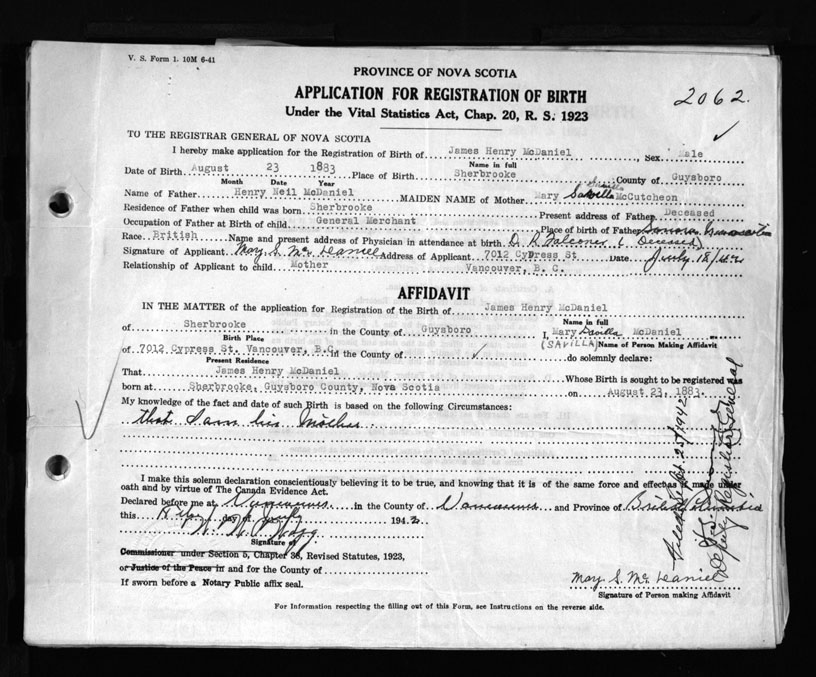 V. S. Form 1. 10M 6-41
PROVINCE OF NOVA SCOTIA
APPLICATION FOR REGISTRATION OF BIRTH
2062.
Under the Vital Statistics Act, Chap. 20, R. S. 1923
TO THE REGISTRAR GENERAL OF NOVA SCOTIA
I hereby make application for the Registration of Birth of James Henry McDaniel Sex Male
Name in full
Date of Birth August 23 1883 Place of Birth Sherbrooke County of Guysboro
Month Date Year
Name of Father Henry Neil McDaniel MAIDEN NAME of Mother Mary McCutcheon
Residence of Father when child was born Sherbrooke Present address of Father Deceased
Occupation of Father at Birth of child General Merchant Place of birth of Father
Race British Name and present address of Physician in attendance at birth D. H. Falconer (Deceased)
Signature of Applicant May S. McDaniel Address of Applicant 7012 Cypress St Date July 18/42
Relationship of Applicant to child Mother Vancouver, B. C.
AFFIDAVIT
IN THE MATTER of the application for Registration of the Birth of James Henry McDaniel
Name in full
of Sherbrooke in the County of Guysboro I, Mary Savilla McDaniel
Birth Place (SAVILLA) Name of Person Making Affidavit
of 7012 Cypress St. Vancouver, B.C. in the County of do solemnly declare:
Present Residence
That James Henry McDaniel Whose Birth is sought to be registered was
born at Sherbrooke, Guysboro County, Nova Scotia on August 23, 1883.
My knowledge of the fact and date of such Birth is based on the following Circumstances:
that I am his Mother
I make this solemn declaration conscientiously believing it to be true, and knowing that it is of the same force and effect as if made under
oath and by virtue of The Canada Evidence Act.
Declared before me at Vancouver in the County of Vancouver and Province of British Columbia
this day of July 1942
Signature of
Commissioner under Section 5, Chapter 38, Revised Statutes, 1923,
or Justice of the Peace in and for the County of
If sworn before a Notary Public affix seal.
May S. McDaniel
Signature of Person making Affidavit
Filed Sept. 25/1942
Deputy Registrar General
For Information respecting the filling out of this Form, see Instructions on the reverse side.